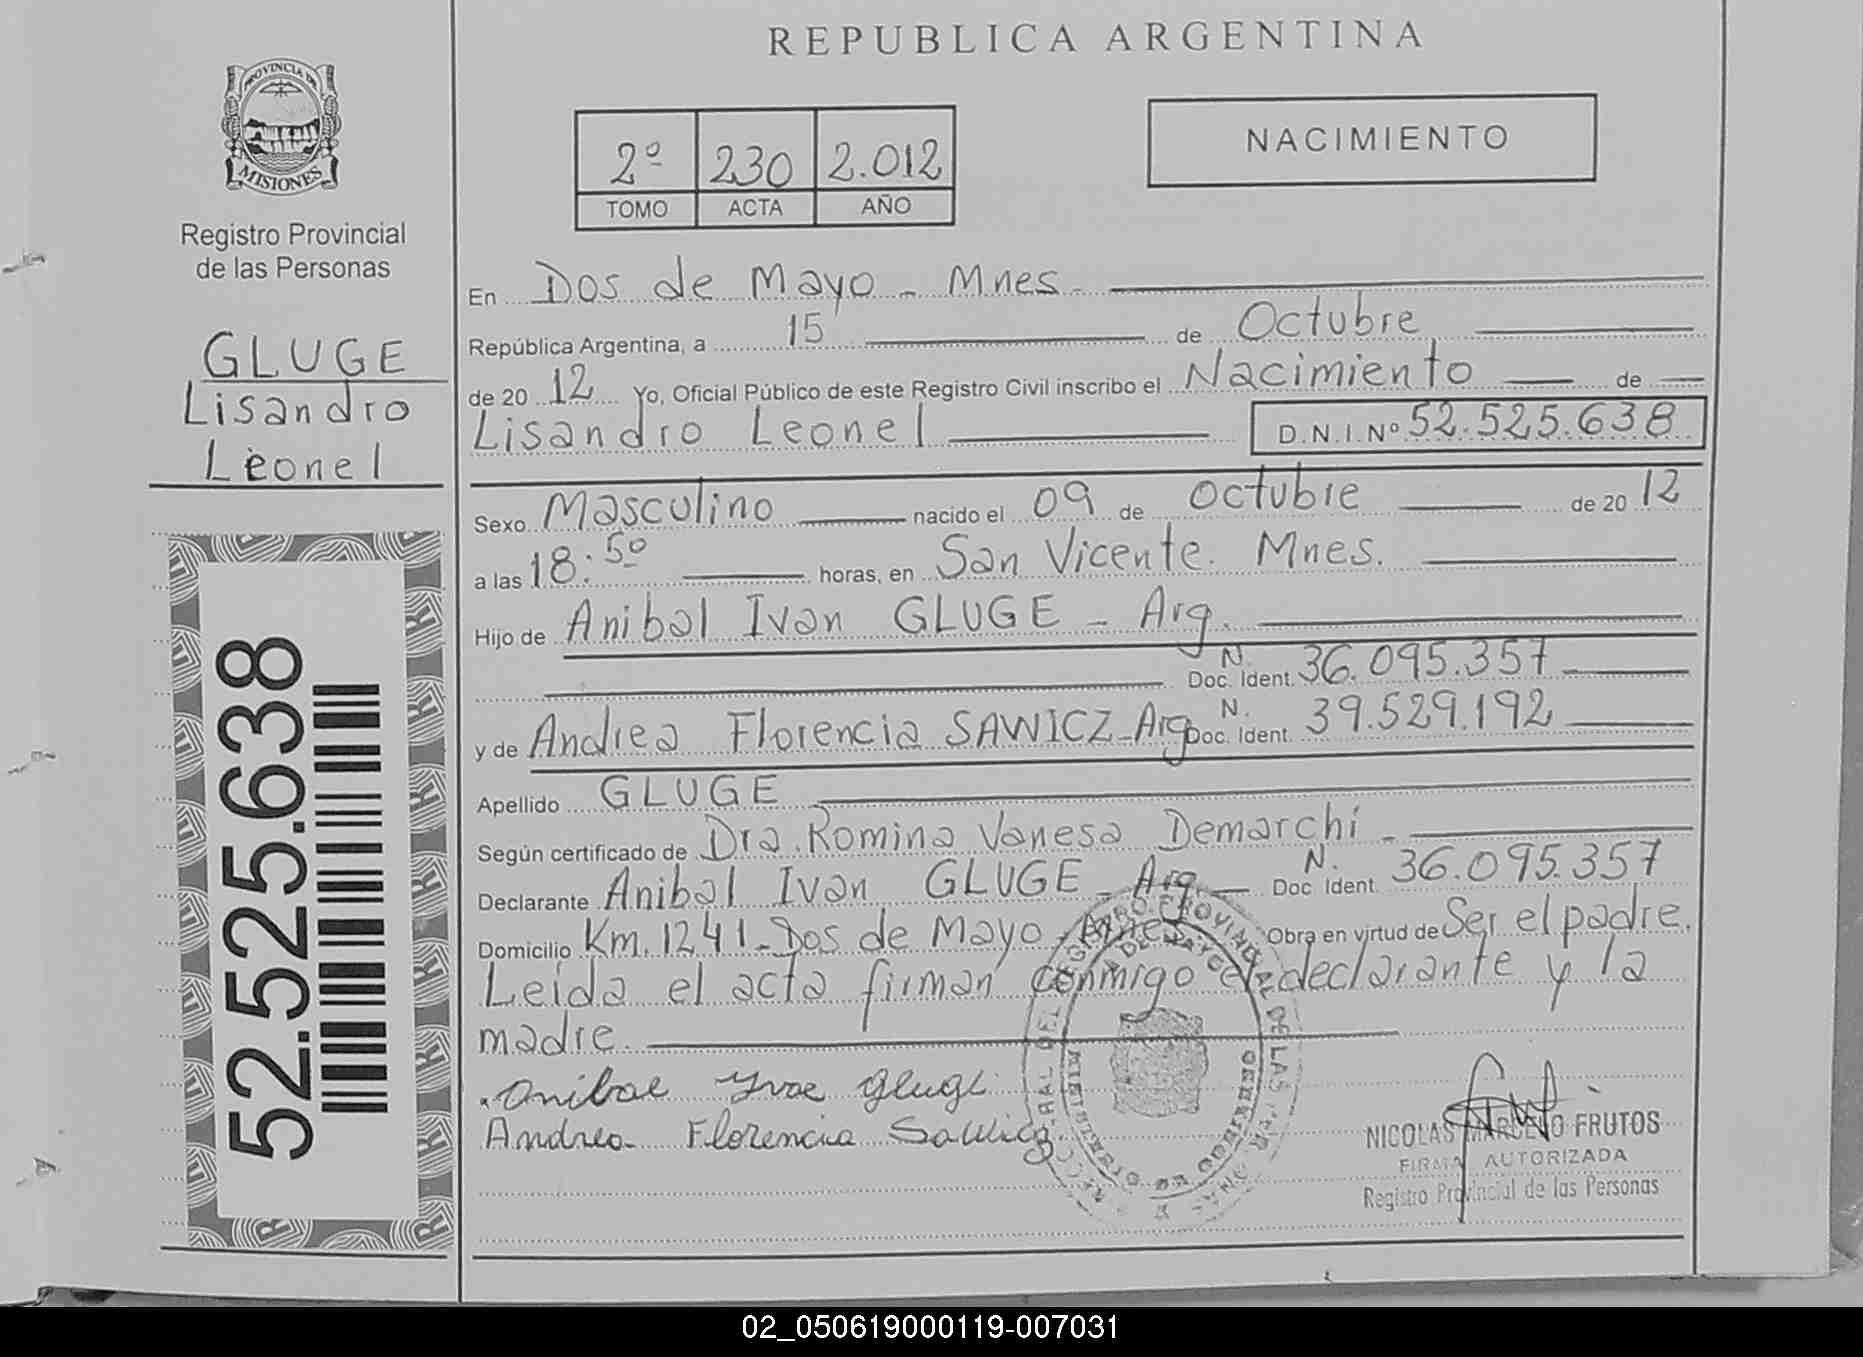 REPUBLICA ARGENTINA
PROVINCIA DE
MISIONES
Registro Provincial
de las Personas
GLUGE
Lisandro
Leonel
52.525.638
2º 230 2.012
TOMO ACTA AÑO
NACIMIENTO
En Dos de Mayo - Mnes.
República Argentina, a 15 de Octubre
de 20 12 Yo, Oficial Público de este Registro Civil inscribo el Nacimiento de
Lisandro Leonel D.N.I.Nº 52.525.638
Sexo Masculino nacido el 09 de Octubre de 20 12
a las 18:50 horas, en San Vicente. Mnes.
Hijo de Anibal Ivan GLUGE - Arg.
N.
Doc. Ident. 36.095.357
y de Andrea Florencia SAWICZ - Arg N. Doc. Ident. 39.529.192
Apellido GLUGE
Según certificado de Dra. Romina Vanesa Demarchi -
Declarante Anibal Ivan GLUGE - Arg N. Doc Ident. 36.095.357
Domicilio Km. 1241 - Dos de Mayo - Mnes Obra en virtud de Ser el padre.
Leida el acta firman conmigo el declarante y la
madre.
Anibal Yvan Gluge
Andrea Florencia Sawicz
NICOLAS MARCELO FRUTOS
FIRMA AUTORIZADA
Registro Provincial de las Personas
02_050619000119-007031